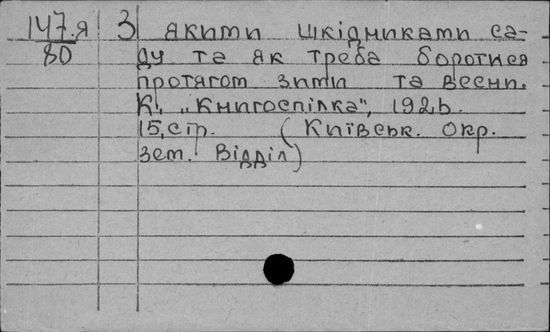 147.Я З якими шкідниками са-
80 ду та як треба боротися
протягом зими та весни.
К. „Книгоспілка", 1926.
15.стр. (Київськ. окр.
зем. Відділ)